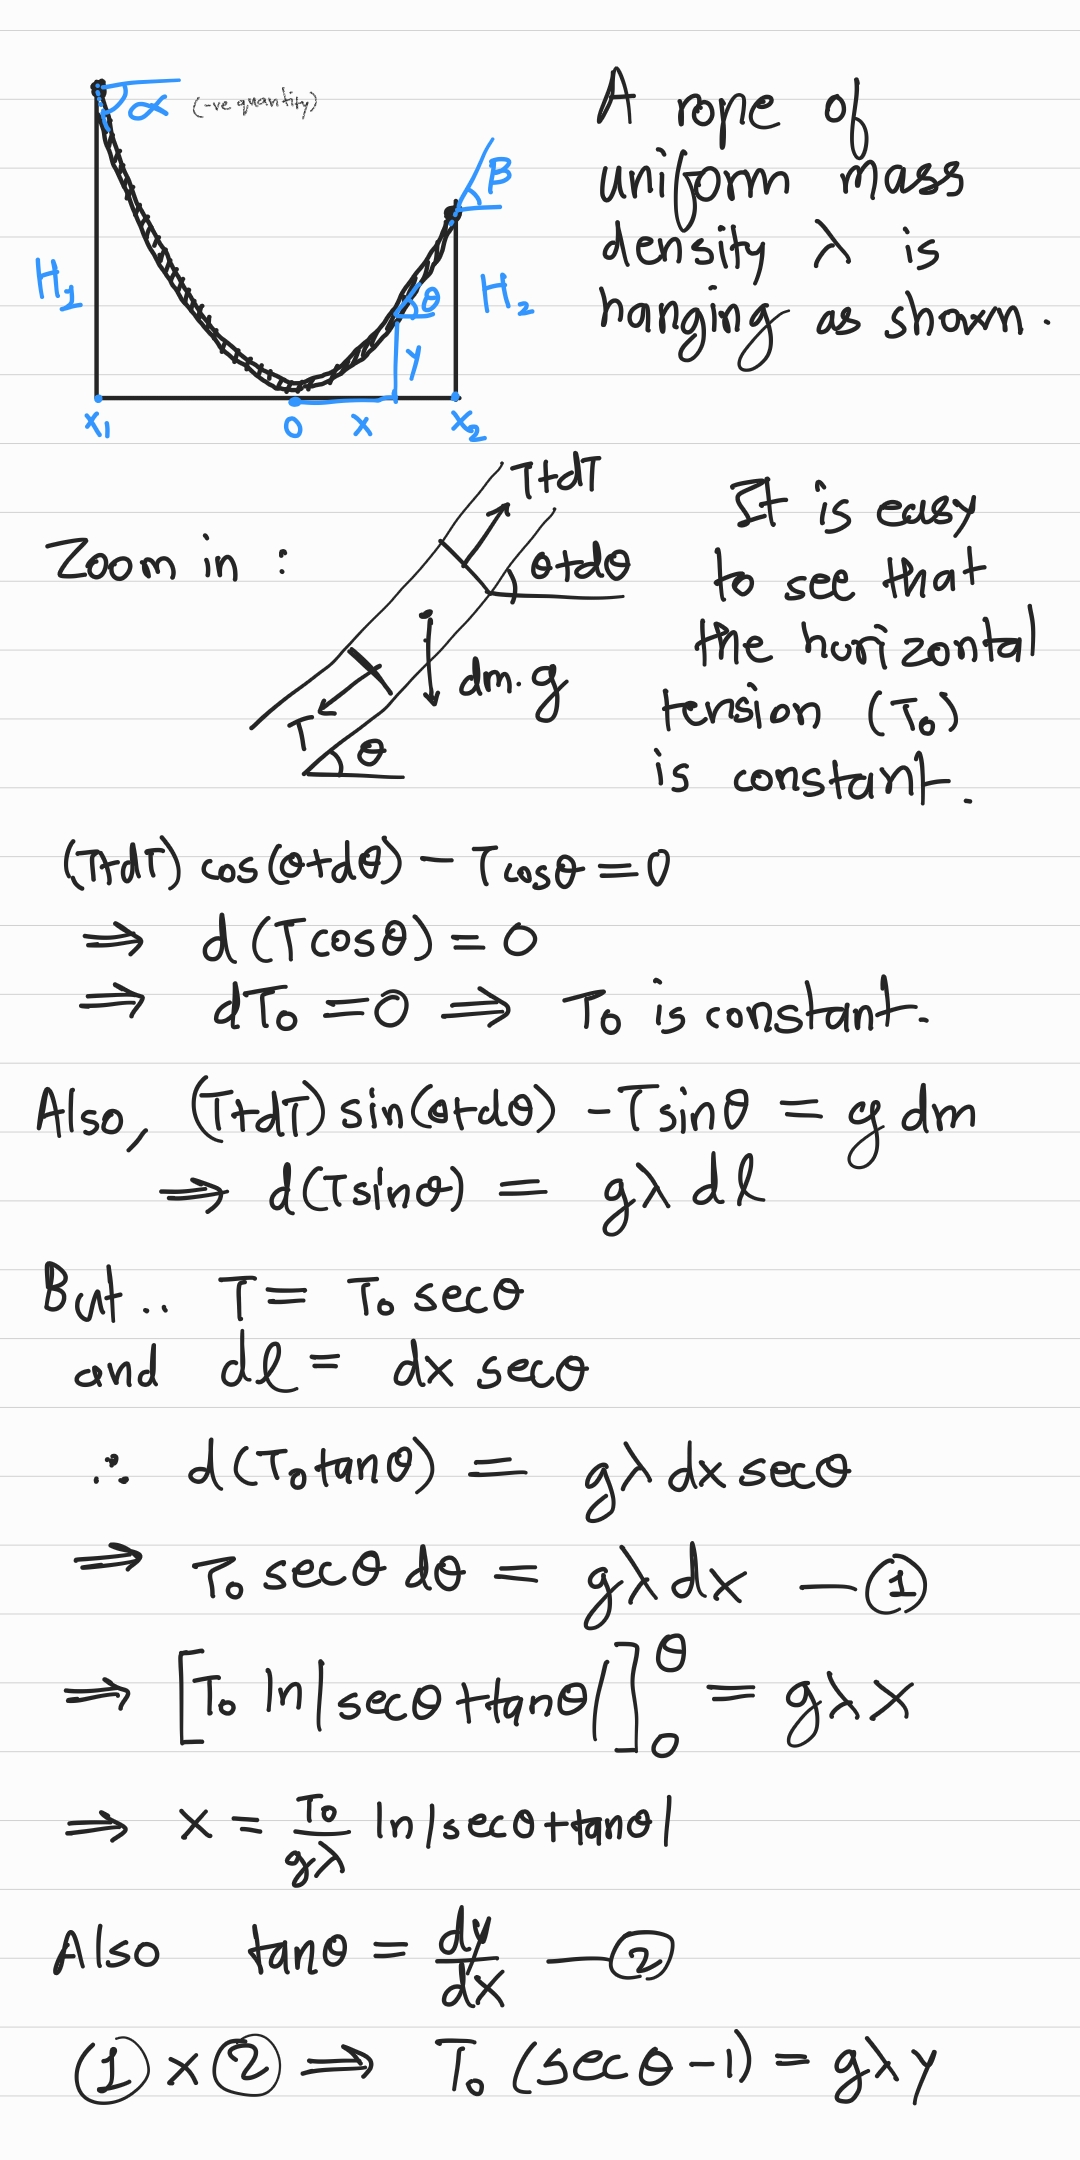 α (-ve quantity)
A rope of
uniform mass
density λ is
hanging as shown.
β
H₁
θ
H₂
y
x₁ 0 x x₂
Zoom in :
T+dT
θ+dθ
dm.g
T
θ
It is easy
to see that
the horizontal
tension (T₀)
is constant.
(T+dT) cos(θ+dθ) - Tcosθ = 0
⇒ d(Tcosθ) = 0
⇒ dT₀ = 0 ⇒ T₀ is constant.
Also, (T+dT) sin(θ+dθ) - Tsinθ = g dm
⇒ d(Tsinθ) = gλ dl
But.. T = T₀ secθ
and dl = dx secθ
∴ d(T₀ tanθ) = gλ dx secθ
⇒ T₀ secθ dθ = gλ dx — ①
⇒ [T₀ ln|secθ+tanθ|]₀^θ = gλx
⇒ x = T₀/gλ ln|secθ+tanθ|
Also tanθ = dy/dx — ②
① x ② ⇒ T₀ (secθ-1) = gλy